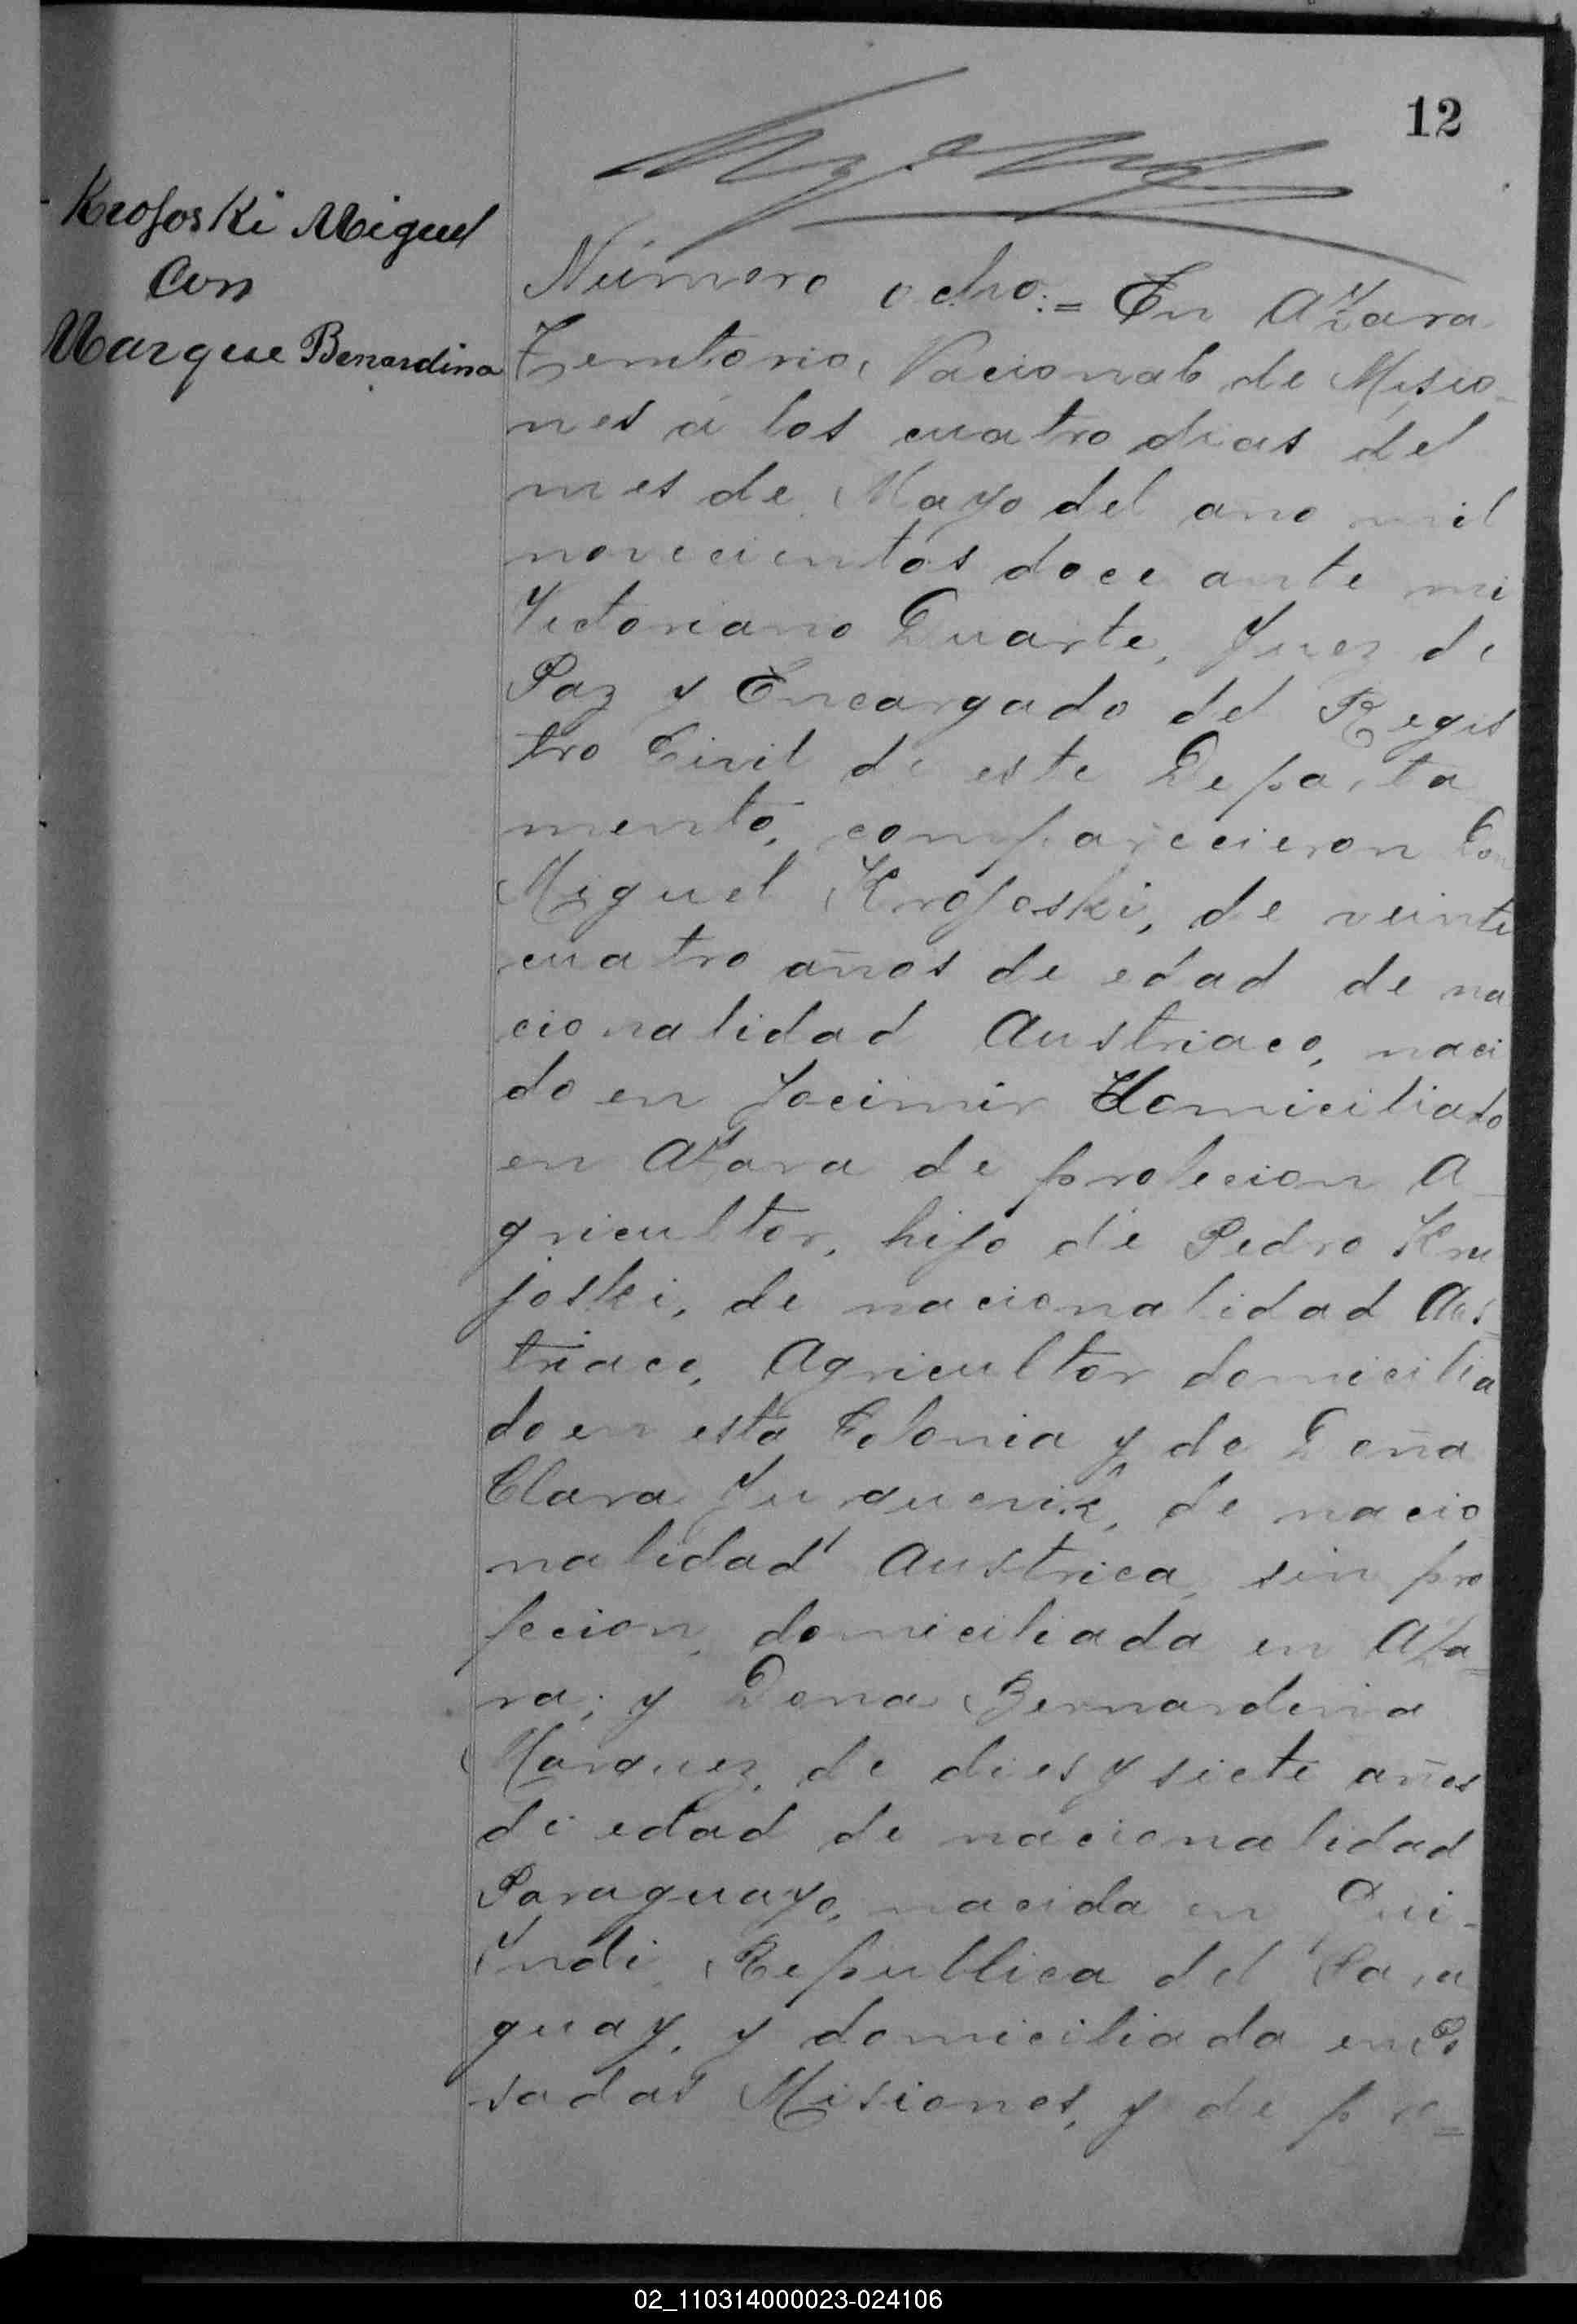 12
Krojoski Miguel
Con
Marque Benardina
Número ocho:= En Azara
Territorio, Nacional de Misio-
nes á los cuatro dias del
mes de Mayo del ano mil
novecientos doce ante mi
Victoriano Duarte, Juez de
Paz y Encargado del Regis
tro Civil de este Departa
mento, comparecieron Don
Miguel Krojoski, de veinte
cuatro años de edad de na
cionalidad Austriaco, naci
do en Jocimir Domiciliado
en Azara de profecion A-
gricultor, hijo de Pedro Kru
joski, de nacionalidad Aus-
triaco, Agricultor domicilia
do en esta Colonia y de Doña
Clara de nacio
nalidad Austrica, sin pro
fecion, domiciliada en Aza-
ra; y Dona Bernardina
Marquez, de dies y siete años
de edad de nacionalidad
Paraguayo, nacida en Qui-
Yndi, Republica del Para
guay, y domiciliada en Po
sadas Misiones, y de pro=
02_110314000023-024106